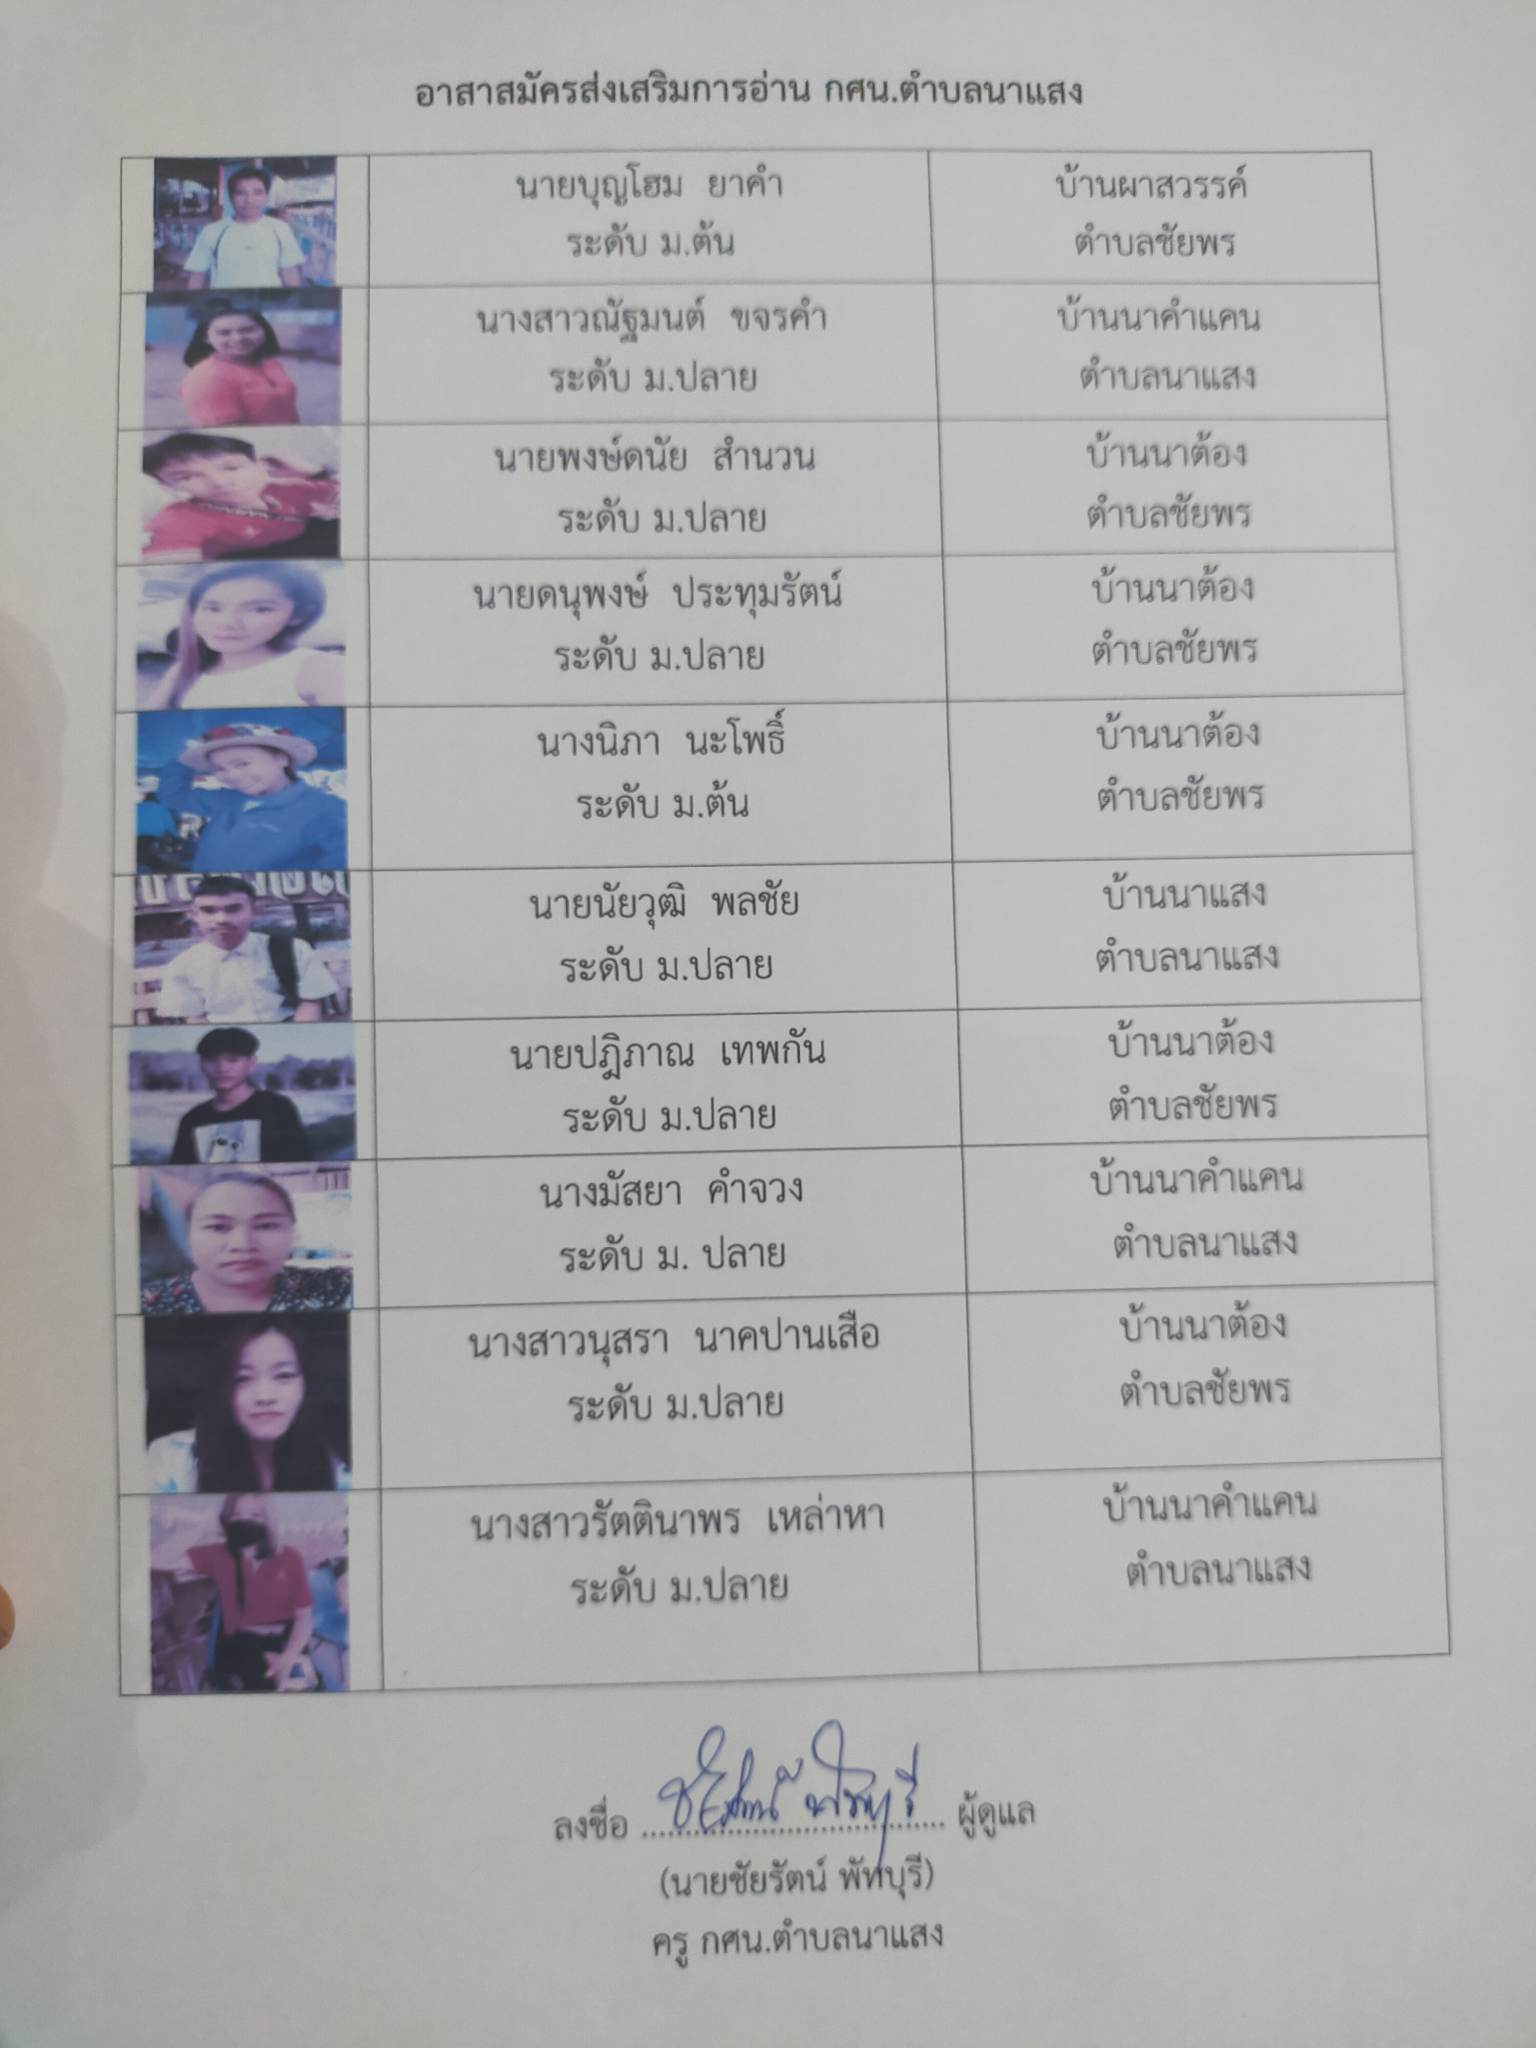 อาสาสมัครส่งเสริมการอ่าน กศน.ตำบลนาแสง
นายบุญโฮม ยาคำ
ระดับ ม.ต้น
บ้านผาสวรรค์
ตำบลชัยพร
นางสาวณัฐมนต์ ขจรคำ
ระดับ ม.ปลาย
บ้านนาคำแคน
ตำบลนาแสง
นายพงษ์ดนัย สำนวน
ระดับ ม.ปลาย
บ้านนาต้อง
ตำบลชัยพร
นายดนุพงษ์ ประทุมรัตน์
ระดับ ม.ปลาย
บ้านนาต้อง
ตำบลชัยพร
นางนิภา นะโพธิ์
ระดับ ม.ต้น
บ้านนาต้อง
ตำบลชัยพร
นายนัยวุฒิ พลชัย
ระดับ ม.ปลาย
บ้านนาแสง
ตำบลนาแสง
นายปฏิภาณ เทพกัน
ระดับ ม.ปลาย
บ้านนาต้อง
ตำบลชัยพร
นางมัสยา คำจวง
ระดับ ม. ปลาย
บ้านนาคำแคน
ตำบลนาแสง
นางสาวนุสรา นาคปานเสือ
ระดับ ม.ปลาย
บ้านนาต้อง
ตำบลชัยพร
นางสาวรัตตินาพร เหล่าหา
ระดับ ม.ปลาย
บ้านนาคำแคน
ตำบลนาแสง
ลงชื่อ ชัยรัตน์ พัทบุรี ผู้ดูแล
(นายชัยรัตน์ พัทบุรี)
ครู กศน.ตำบลนาแสง